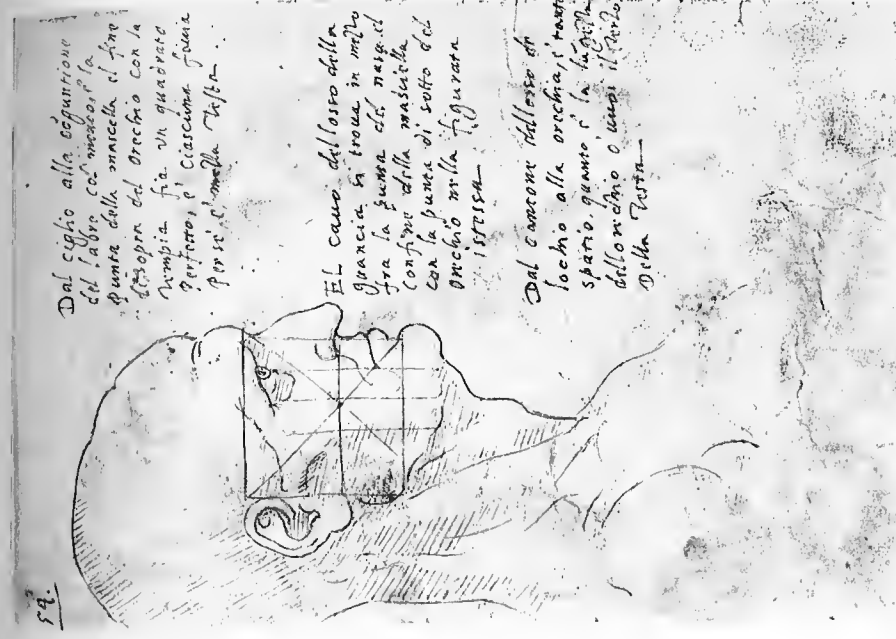 Dal ciglio alla
del labro col mento, e la
Punta della mascella el fine
disopra del orechio con la
fia un quadrato
Perfetto, e ciascuna faccia
Per se e mezza testa.
EL cavo dell osso della
guancia si trova in mezzo
fra la punta del naso, el
Confine della mascella
con la punta di sotto del
orechio nella figurata
istessa
Dal cantone dell osso di
lochio alla orechia, e tanto
spatio, quanto e la
dell orechio o
Della Testa